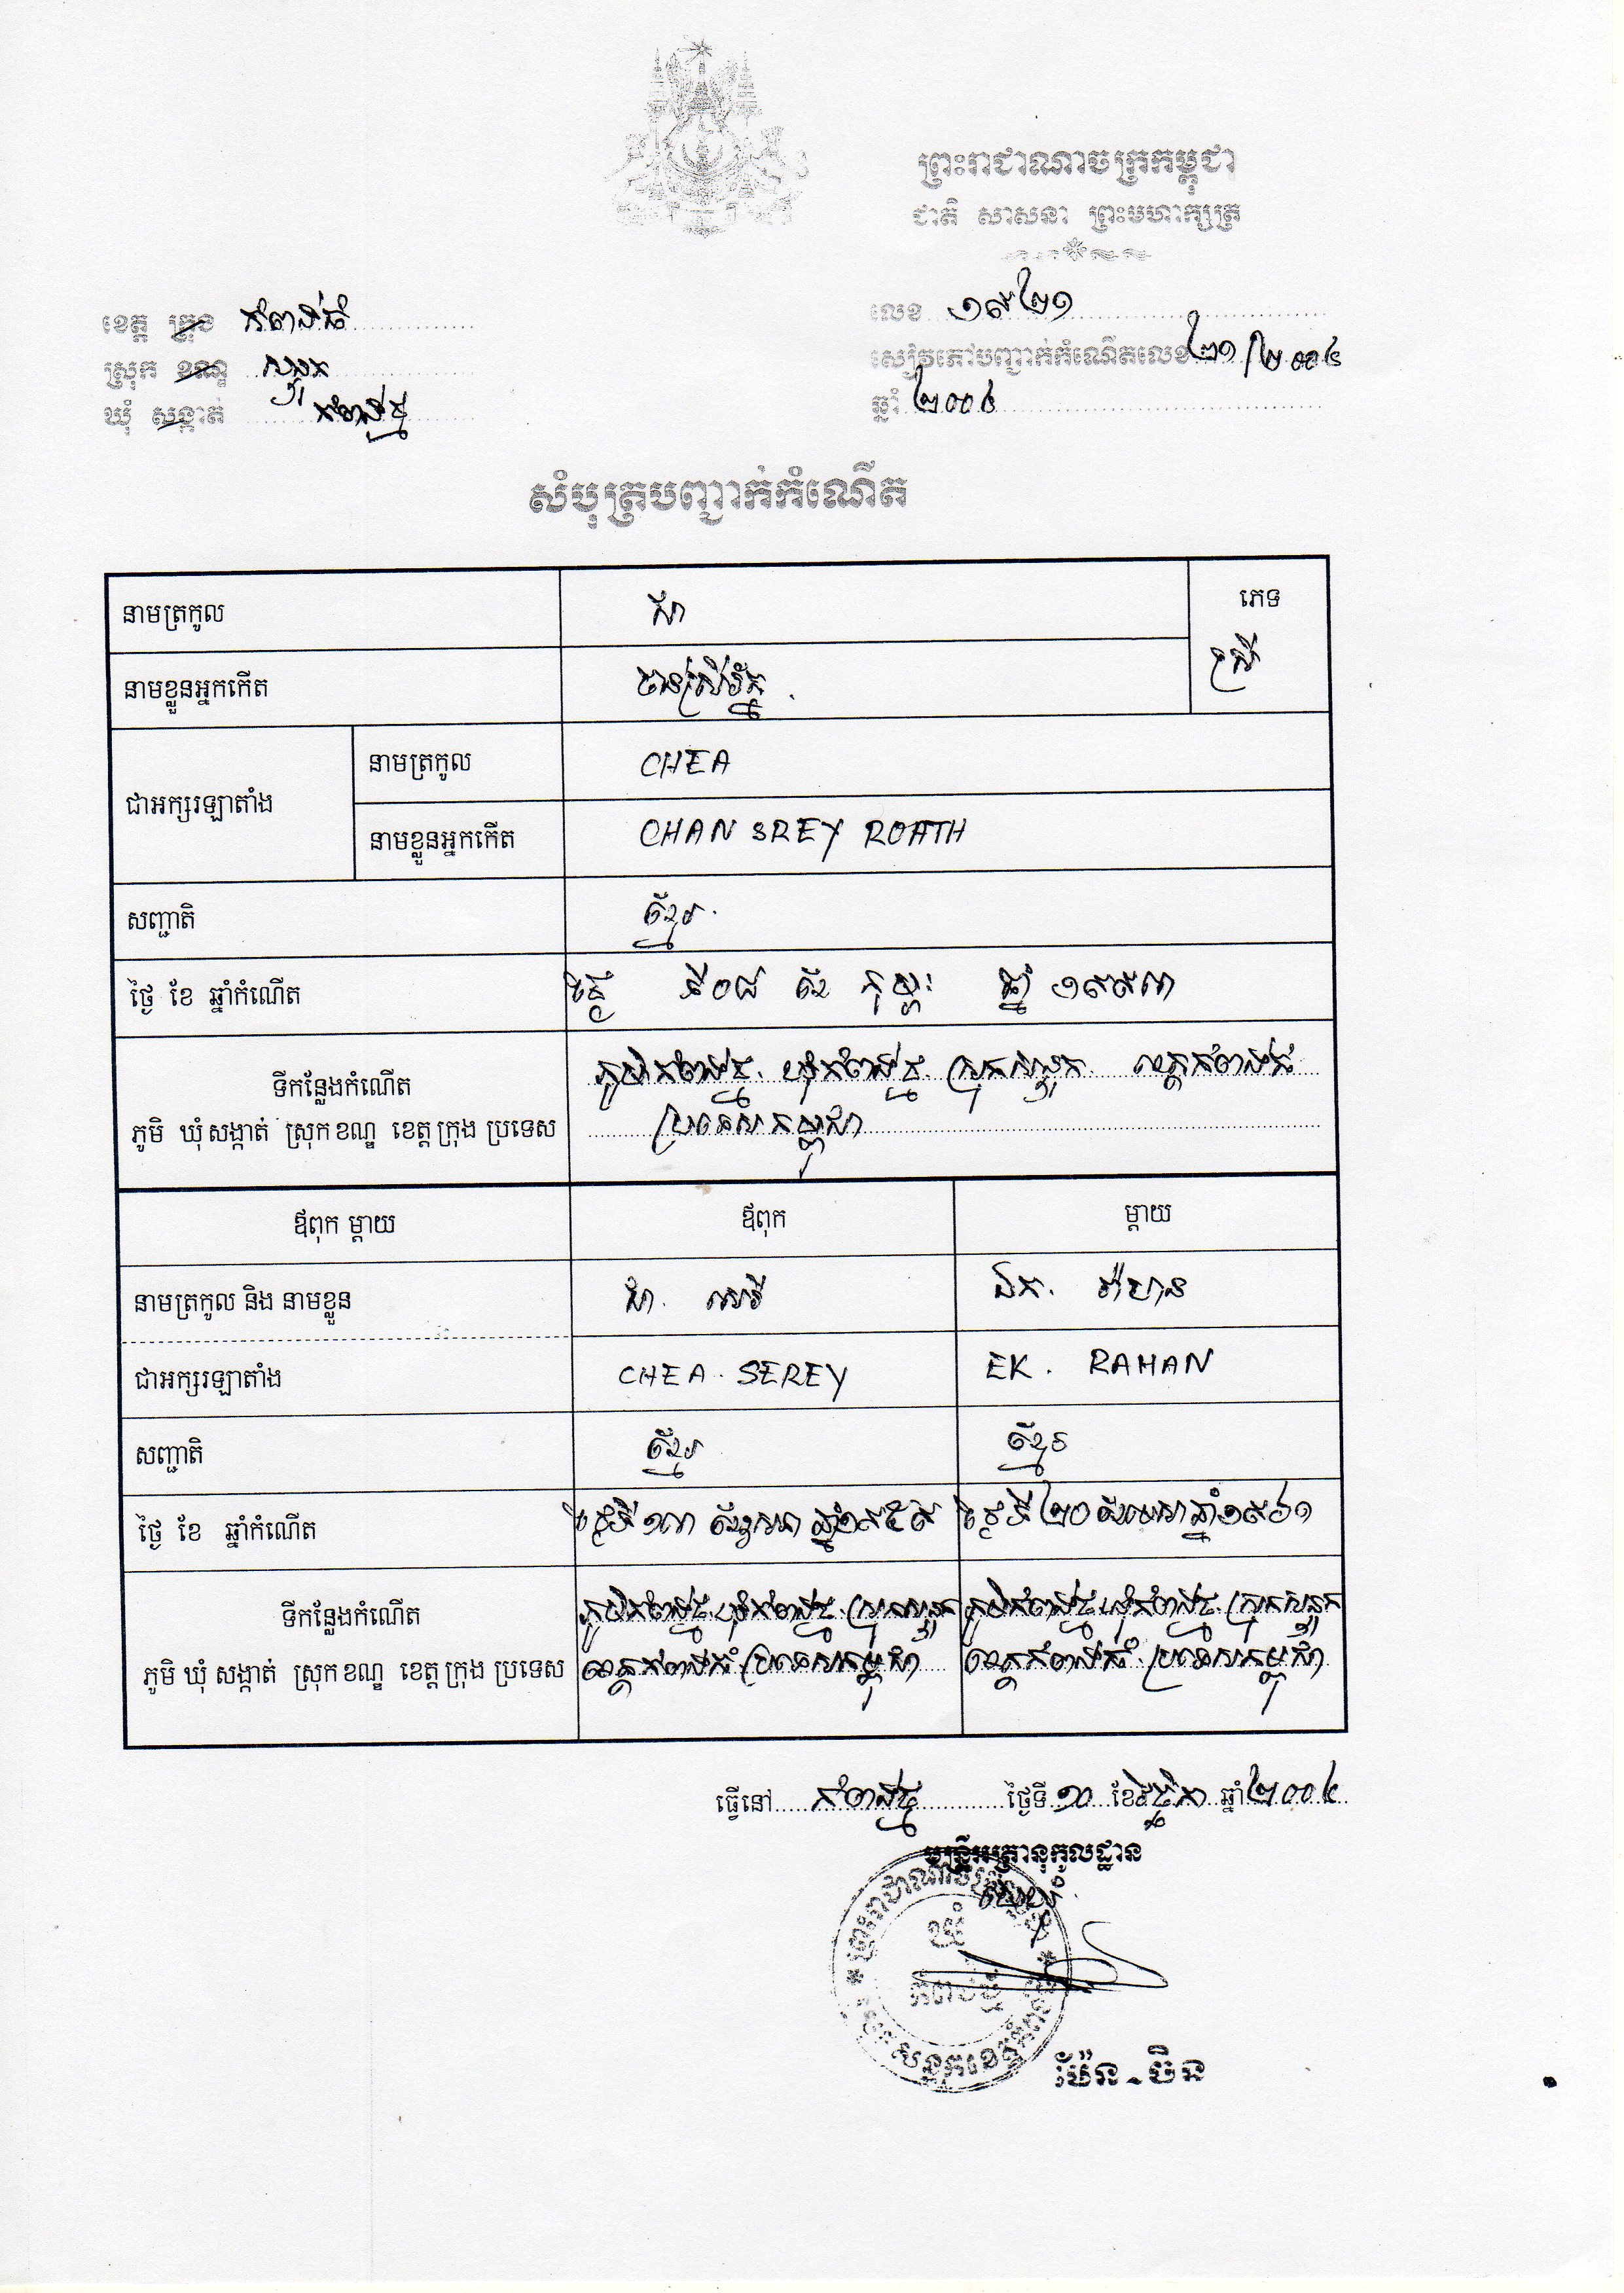 ព្រះរាជាណាចក្រកម្ពុជា
ជាតិ សាសនា ព្រះមហាក្សត្រ
ខេត្ត ក្រុង កំពង់ធំ
លេខ ១៩២១
ស្រុក ខណ្ឌ សន្ទុក
សៀវភៅបញ្ជាក់កំណើតលេខ ២១/២០០៤
ឃុំ សង្កាត់ កំពង់ថ្ម
ឆ្នាំ ២០០៤
សំបុត្របញ្ជាក់កំណើត
នាមត្រកូល ជា
ភេទ
ស្រី
នាមខ្លួនអ្នកកើត ចាន់ស្រីរ័ត្ន
ជាអក្សរឡាតាំង
នាមត្រកូល CHEA
នាមខ្លួនអ្នកកើត CHAN SREY ROATH
សញ្ជាតិ ខ្មែរ
ថ្ងៃ ខែ ឆ្នាំកំណើត ថ្ងៃ ទី០៨ ខែ កុម្ភៈ ឆ្នាំ ១៩៩៣
ទីកន្លែងកំណើត
ភូមិ ឃុំ សង្កាត់ ស្រុក ខណ្ឌ ខេត្ត ក្រុង ប្រទេស
ភូមិកំពង់ថ្ម ឃុំកំពង់ថ្ម ស្រុកសន្ទុក ខេត្តកំពង់ធំ
ប្រទេសកម្ពុជា
ឪពុក ម្តាយ
ឪពុក
ម្តាយ
នាមត្រកូល និង នាមខ្លួន
ជា សេរី
ឯក រ៉ាហាន
ជាអក្សរឡាតាំង
CHEA. SEREY
EK. RAHAN
សញ្ជាតិ
ខ្មែរ
ខ្មែរ
ថ្ងៃ ខែ ឆ្នាំកំណើត
ថ្ងៃទី ១៣ ខែឧសភា ឆ្នាំ១៩៥៩
ថ្ងៃទី ២០ ខែមេសា ឆ្នាំ១៩៦១
ទីកន្លែងកំណើត
ភូមិ ឃុំ សង្កាត់ ស្រុក ខណ្ឌ ខេត្ត ក្រុង ប្រទេស
ភូមិកំពង់ថ្ម ឃុំកំពង់ថ្ម ស្រុកសន្ទុក
ខេត្តកំពង់ធំ ប្រទេសកម្ពុជា
ភូមិកំពង់ថ្ម ឃុំកំពង់ថ្ម ស្រុកសន្ទុក
ខេត្តកំពង់ធំ ប្រទេសកម្ពុជា
ធ្វើនៅ កំពង់ថ្ម ថ្ងៃទី ១០ ខែវិច្ឆិកា ឆ្នាំ ២០០៤
មន្ត្រីអត្រានុកូលដ្ឋាន
ឃុំ
កំពង់ថ្ម
ម៉ែន - ចិន